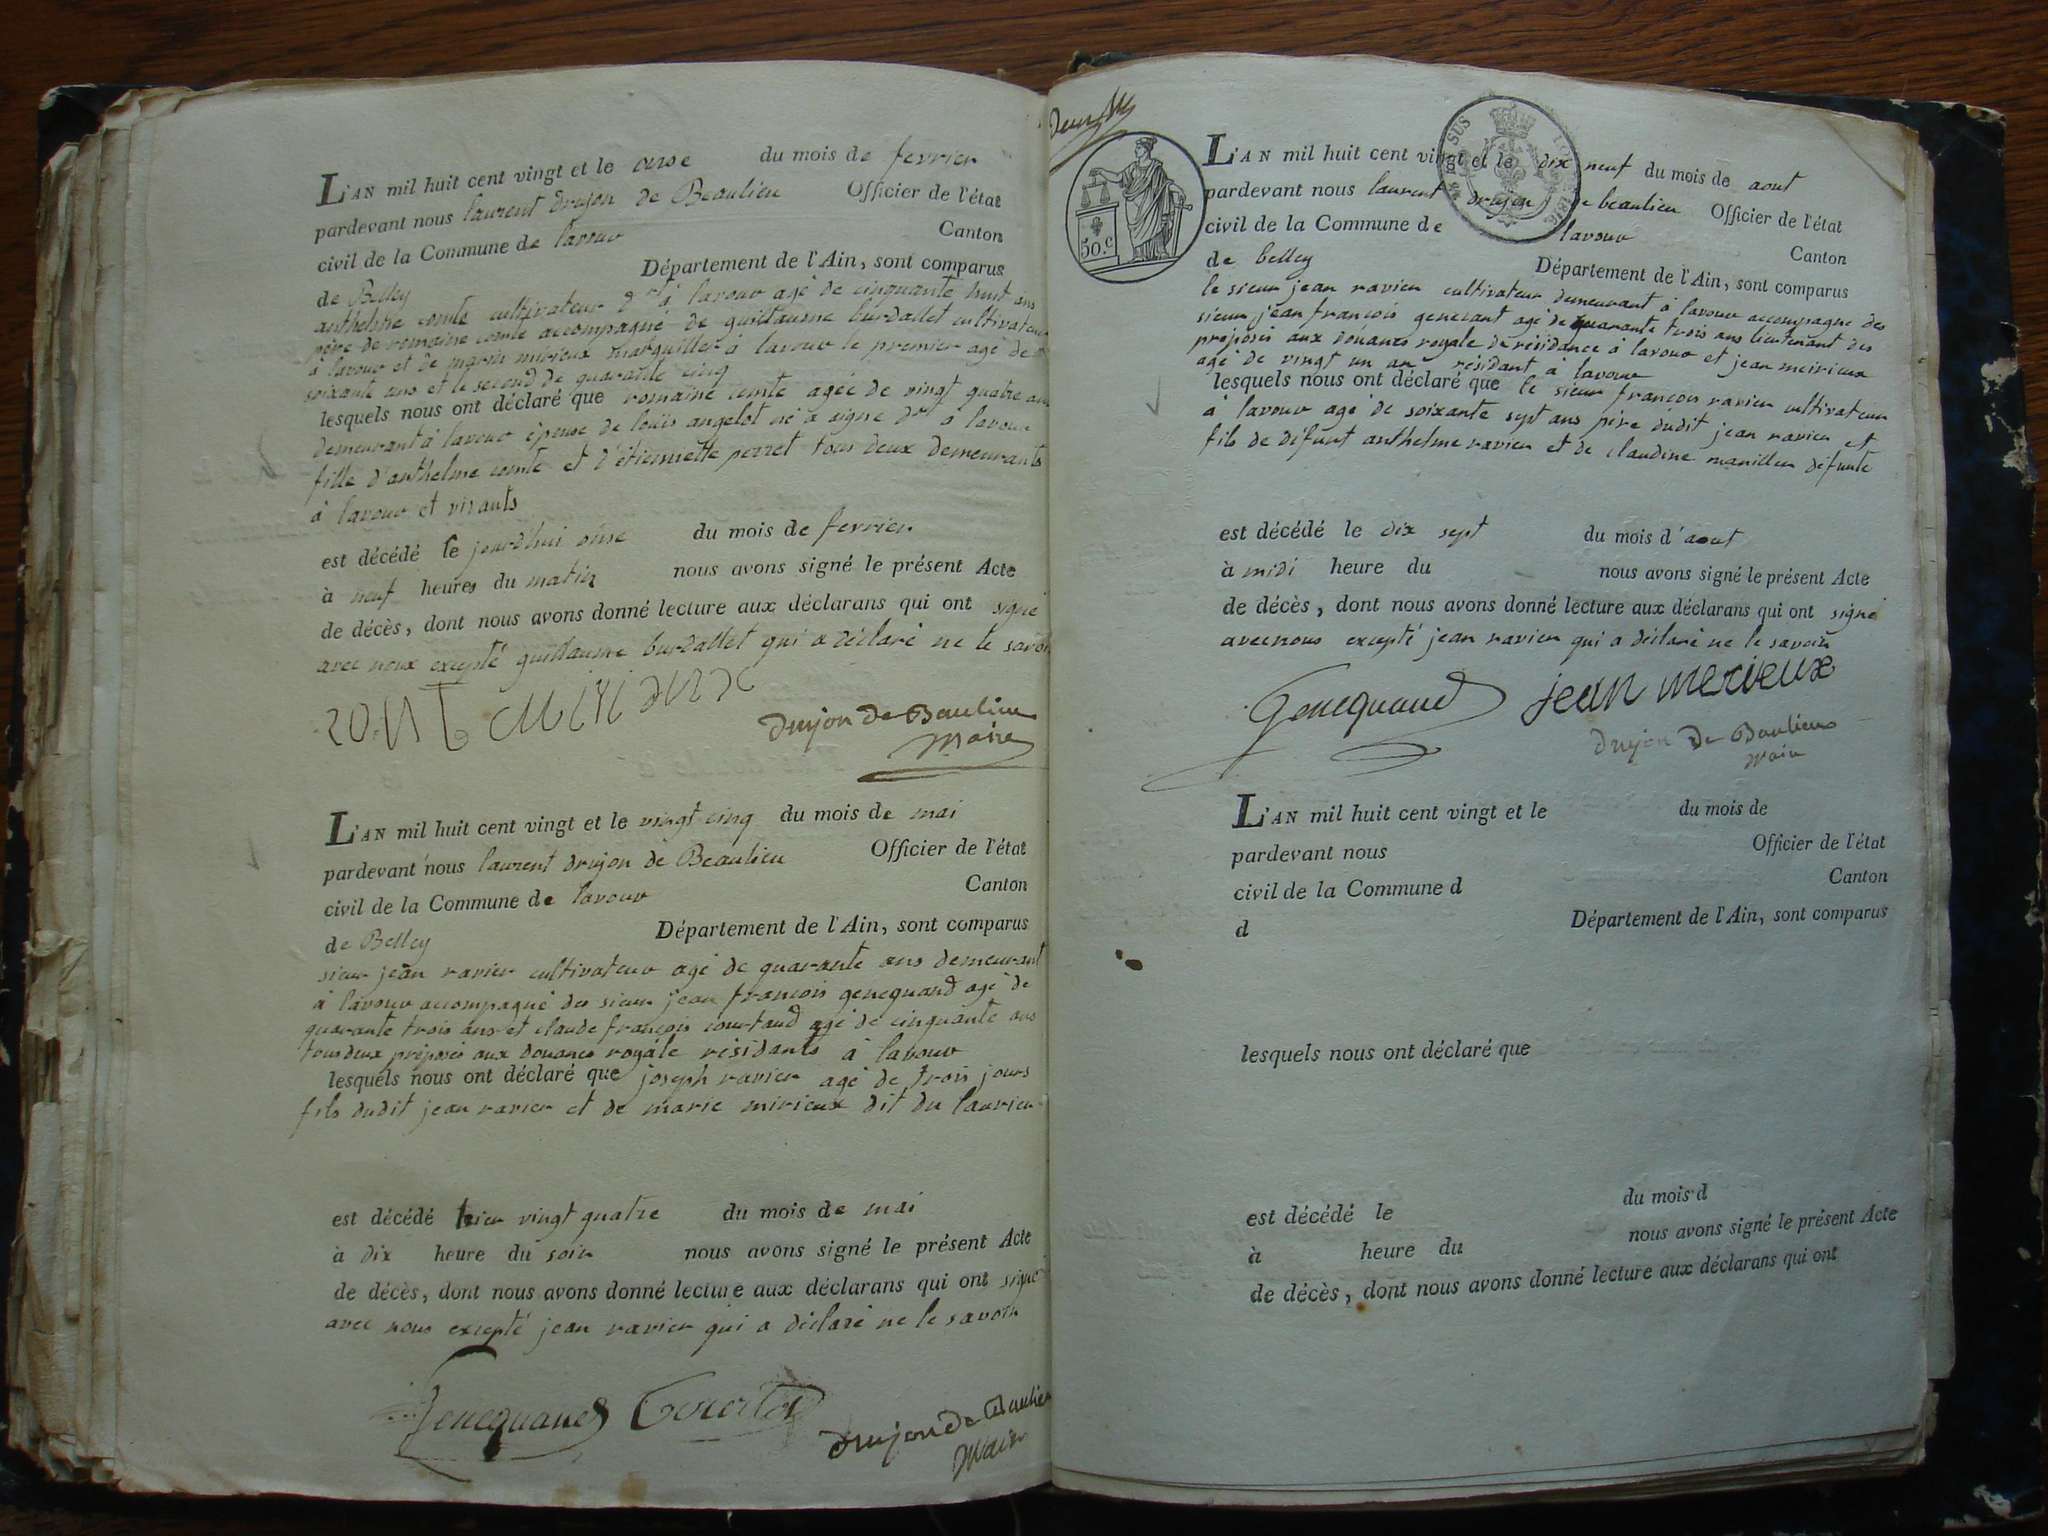 L'AN mil huit cent vingt et le onse du mois de fevrier
pardevant nous laurent drujon de Beaulieu Officier de l'état
civil de la Commune de lavour Canton
de Belley Département de l'Ain, sont comparus
anthelme comte cultivateur à lavour agé de cinquante huit ans
père de romaine comte accompagné de guillaume burdallet cultivateur
à lavour et de marin mirieux marguillier à lavour le premier agé de
soixante ans et le second de quarante cinq
lesquels nous ont déclaré que romaine comte agée de vingt quatre ans
demeurant à lavour épouse de loüis angelot né à aigne dt à lavour
fille d'anthelme comte et d'étiennette perret tous deux demeurants
à lavour et vivants
est décédé le jourd'hui onse du mois de fevrier
à neuf heures du matin nous avons signé le présent Acte
de décès, dont nous avons donné lecture aux déclarans qui ont signé
avec nous excepté guillaume burdallet qui a déclaré ne le savoir
drujon de Beaulieu
maire
L'AN mil huit cent vingt et le vingt cinq du mois de mai
pardevant nous laurent drujon de Beaulieu Officier de l'état
civil de la Commune de lavour Canton
de Belley Département de l'Ain, sont comparus
sieur jean ravier cultivateur agé de quarante ans demeurant
à lavour accompagné des sieur jean françois genequand agé de
quarante trois ans et claude françois courtaud agé de cinquante ans
tous deux préposés aux douanes royale résidants à lavour
lesquels nous ont déclaré que joseph ravier agé de trois jours
fils dudit jean ravier et de marie mirieux dit du laurier
est décédé hier vingt quatre du mois de mai
à dix heure du soir nous avons signé le présent Acte
de décès, dont nous avons donné lecture aux déclarans qui ont signé
avec nous excepté jean ravier qui a déclaré ne le savoir
Genequand
drujon de Beaulieu
Maire
50.c
L'AN mil huit cent vingt et le dix neuf du mois de aout
pardevant nous laurent drujon de beaulieu Officier de l'état
civil de la Commune de lavour Canton
de belley Département de l'Ain, sont comparus
le sieur jean ravier cultivateur demeurant à lavour accompagné des
sieur jean françois genecant agé de quarante trois ans lieutenant des
préposés aux douanes royale de résidance à lavour et jean meirieux
agé de vingt un an résidant à lavour
lesquels nous ont déclaré que le sieur françois ravier cultivateur
à lavour agé de soixante sept ans père dudit jean ravier et
fils de difunt anthelme ravier et de claudine manillier difunte
est décédé le dix sept du mois d'aout
à midi heure du nous avons signé le présent Acte
de décès, dont nous avons donné lecture aux déclarans qui ont signé
avec nous excepté jean ravier qui a déclaré ne le savoir
Genequand jean merieux
drujon de Baulieu
maire
L'AN mil huit cent vingt et le du mois de
pardevant nous Officier de l'état
civil de la Commune d Canton
d Département de l'Ain, sont comparus
lesquels nous ont déclaré que
est décédé le du mois d
à heure du nous avons signé le présent Acte
de décès, dont nous avons donné lecture aux déclarans qui ont